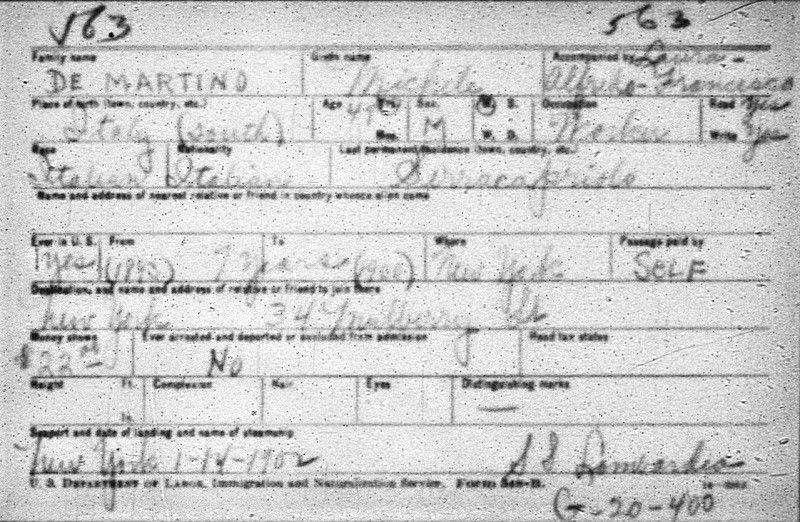 563 563
Family name Given name Accompanied by Laura -
DE MARTINO Michele Alfredo - Francesco
Place of birth (town, country, etc.) Age Yrs. Sex M. S. Occupation Read Yes
Italy (South) Mos. M W. D. Worker Write Yes
Race Nationality Last permanent residence (town, country, etc.)
Italian Italian Serracapriola
Name and address of nearest relative or friend in country whence alien came
Ever in U. S. From To Where Passage paid by
Yes (1893) 7 years (1900) New York SELF
Destination, and name and address of relative or friend to join there
New York 34 Mulberry St
Money shown Ever arrested and deported or excluded from admission Head tax status
$22 00 No
Height Ft. Complexion Hair Eyes Distinguishing marks
In. —
Seaport and date of landing and name of steamship
New York 1-14-1902 S S Lombardia
U. S. DEPARTMENT OF LABOR, Immigration and Naturalization Service.
G-20-400